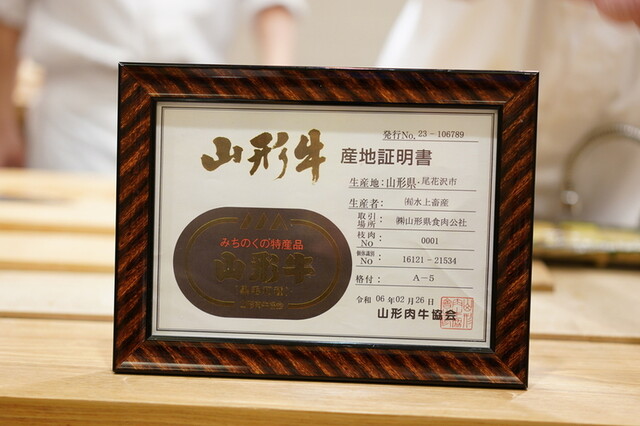 発行No. 23-106789
山形牛 産地証明書
生産地: 山形県・尾花沢市
生産者: ㈲水上畜産
取引場所 ㈱山形県食肉公社
枝肉NO 0001
個体識別NO 16121-21534
格付: A-5
令和 06年02月26日
山形肉牛協会
みちのくの特産品
山形牛